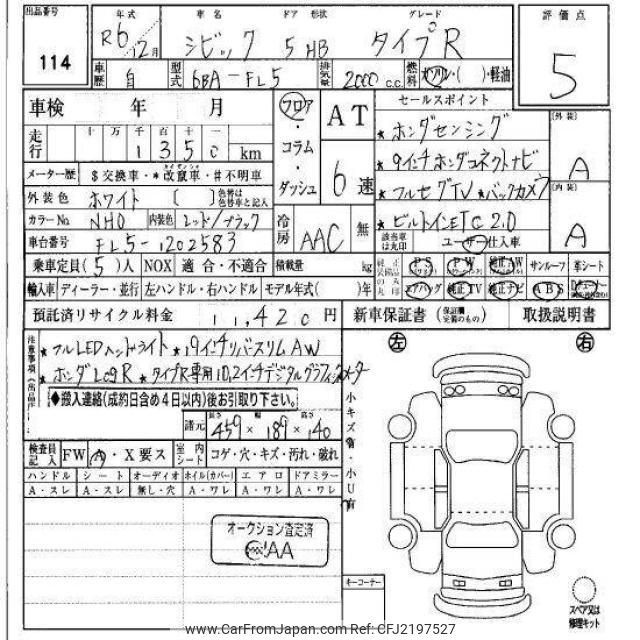 出品番号 114
年式 R6 12月
車名 シビック
ドア 形状 5 HB
グレード タイプR
評価点 5
車歴 自
型式 6BA-FL5
排気量 2000 c.c.
燃料 ガソリン・( )・軽油
車検 年 月
フロア・コラム・ダッシュ
AT 6速
セールスポイント
★ホンダセンシング
★9インチホンダコネクトナビ
★フルセグTV ★バックカメラ
★ビルトインETC2.0
外装 A
内装 A
走行 十 万 千 百 十 1350 km
メーター歴 $交換車・*改竄車・#不明車
外装色 ホワイト [ ] 色替は色替車と記入
カラーNo. NH0 内装色 レッド/ブラック
冷房 AAC 無
該当車は丸印 ユーザー・仕入車
車台番号 FL5-1202583
乗車定員(5)人 NOX 適合・不適合 積載量 kg
純正装備品の丸印 PS PW 純正AW サンルーフ 革シート
輸入車 ディーラー・並行 左ハンドル・右ハンドル モデル年式( )年
エアバッグ 純正TV 純正ナビ ABS
預託済リサイクル料金 11,420円
新車保証書 (保証欄完備のもの) 取扱説明書
注意事項
★フルLEDヘッドライト ★19インチリバースリムAW
★ホンダLogR ★タイプR専用10.2インチデジタルグラフィックメーター
◆搬入連絡(成約日含め4日以内)後お引取り下さい。
諸元 長さ 459 × 幅 189 × 高さ 140
検査員記入 FW A・X要ス 室内シート コゲ・穴・キズ・汚れ・破れ
ハンドル シート オーディオ ホイル(カバー) エアロ ドアミラー
A・スレ A・スレ 無し・穴 A・ワレ A・ワレ A・ワレ
小キズ有・小U有
左 右
オークション査定済
AA
キーコーナー
スペア又は修理キット
www.CarFromJapan.com Ref: CFJ2197527